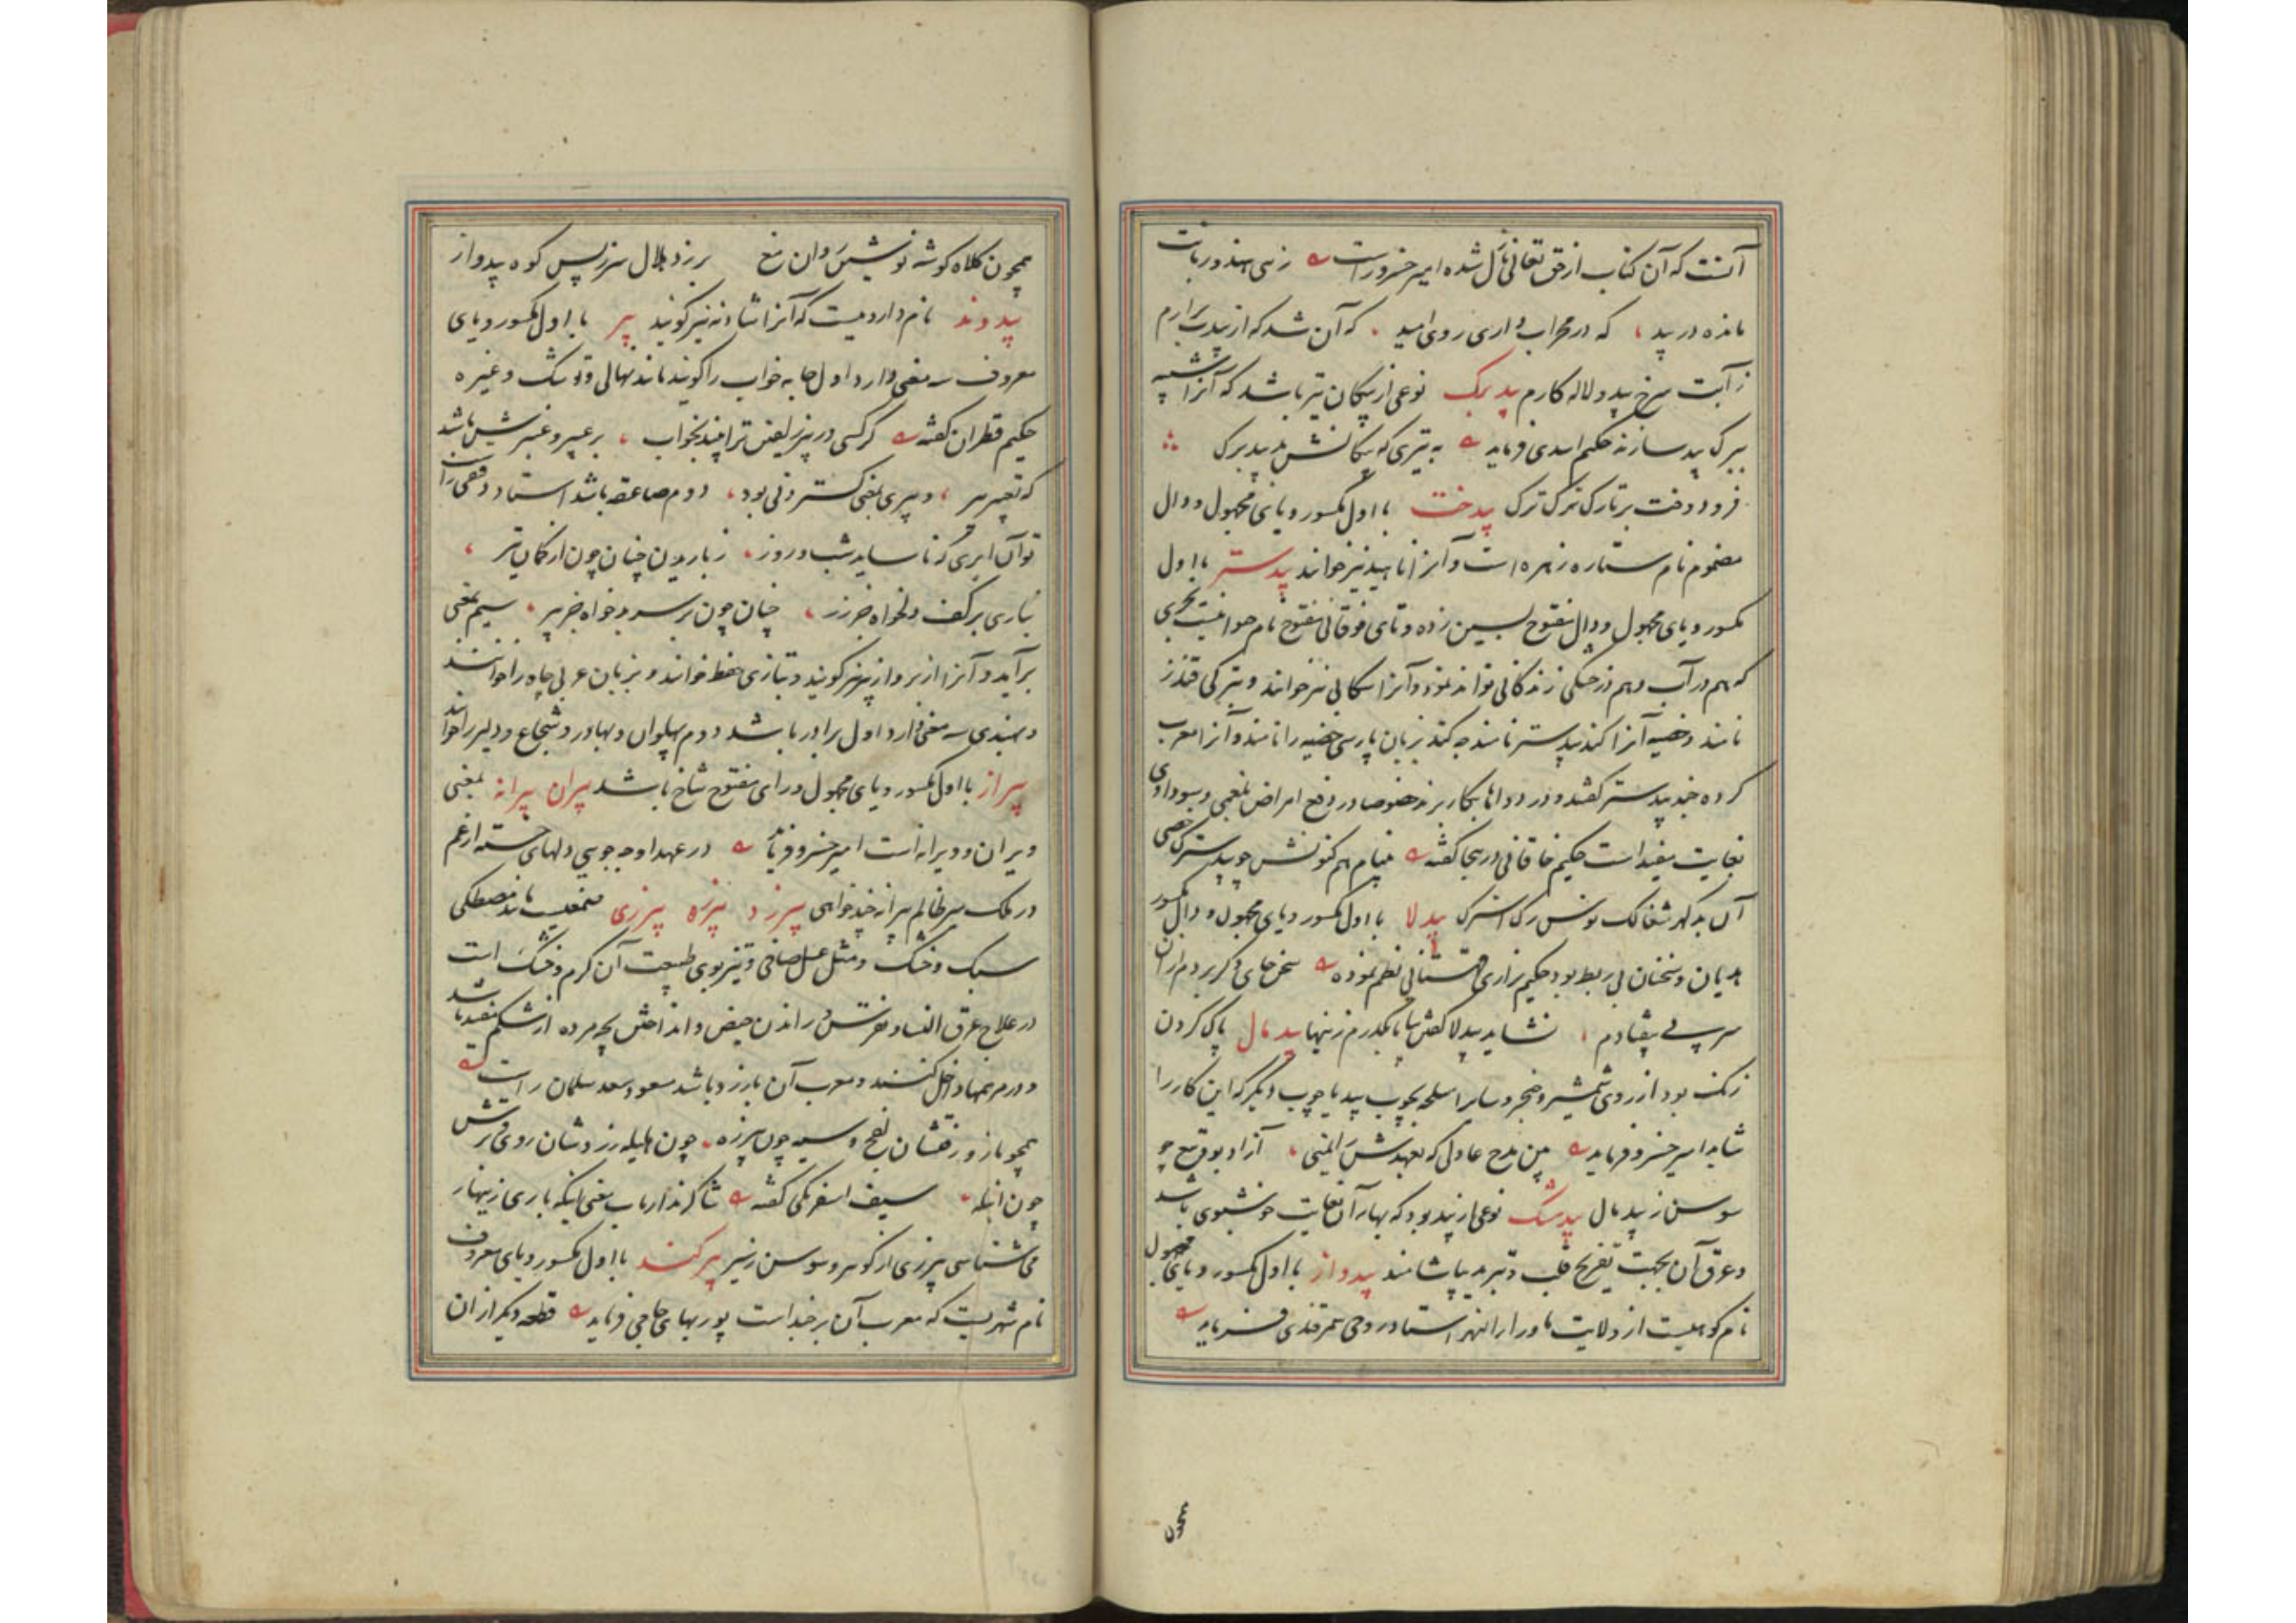 آنست که آن کتاب از حق تعالی نازل شده امیر خسرو راست
مانده در بید که در محراب داری روی امید که آن شد که از بید برارم
ز آبت سرخ بید و لاله کارم بید برگ نوعی از پیکان تیر باشد که آنرا شبیه
ببرگ بید سازند حکیم اسدی فرماید به تیری که پیکانش بد بید برگ
فرو دوخت بر تارک ترک ترک بیدخت با اول مکسور و یای مجهول و دال
مضموم نام ستاره زهره است و آنرا ناهید نیز خوانند بیدستر با اول
مکسور و یای مجهول و دال مفتوح بسین زده و تای فوقانی مفتوح نام حیوانیست بحری
که هم در آب و هم در خشکی زندگانی تواند نمود و آنرا سگابی نیز خوانند و بترکی قندز
نامند و خصیه آنرا گند بیدستر نامند چه گند بزبان پارسی خصیه را نامند و آنرا معرب
کرده جند بیدستر گفتند و در دواها بکار برند خصوصا در دفع امراض بلغمی و سوداوی
بغایت مفید است حکیم خاقانی در هجا گفته
بیدلا با اول مکسور و یای مجهول و دال مکسور
هذیان و سخنان بی ربط بود حکیم نزاری قهستانی نظم نموده سخن جای دگر بردم از آن
سر پی بیفتادم نشاید بیدلا گفتن بیا تا بگذرم زینها بیدمال پاک کردن
زنگ بود از روی شمشیر و خنجر و سایر اسلحه بچوب بید یا چوب دیگر که این کار را
شاید امیر خسرو فرماید
سوسن ز بیدمال بیدمشک نوعی از بید بود که بهار آن بغایت خوشبوی باشد
و عرق آن بجهت تفریح قلب و تبرید بیاشامند بیدواز با اول مکسور و یای مجهول
نام کوهیست از ولایت ماوراء النهر استاد روحی سمرقندی فرماید
همچون کلاه گوشه نوشین روان مغ بر زد هلال سر ز پس کوه بیدواز
بیدوند نام داروییست که آنرا شادنه نیز گویند بیر با اول مکسور و یای
معروف سه معنی دارد اول جامه خواب را گویند مانند نهالی و توشک و غیره
حکیم قطران گفته گر کسی در بیر زلفین ترا بیند بخواب بر عبیر و عنبرش باشد
که تعبیر بیر و بیری بمعنی گستردنی بود دوم صاعقه باشد استاد دقیقی راست
تو آن ابری که ناساید شب و روز ز باریدن چنان چون از کمان تیر
نباری بر کف دلخواه جز زر چنان چون بر سر بدخواه جز بیر سیم بمعنی
برآید و آنرا از بر و از بیر نیز گویند و بتازی حفظ خوانند و بزبان عربی چاه را خوانند
و بهندی سه معنی دارد اول برادر باشد دوم پهلوان و بهادر و شجاع و دلیر را خوانند
بیراز با اول مکسور و یای مجهول و رای مفتوح شاخ باشد بیران بیرانه بمعنی
ویران و ویرانه است امیر خسرو فرماید در عهد او چه جویی دلهای خسته از غم
در ملک میر ظالم بیرانه چند خواهی بیرزد بیرزه بیرزی صمغیست مانند مصطکی
سبک و خشک و مثل عسل صافی و تیز بوی طبیعت آن گرم و خشک است
در علاج عرق النسا و نقرس و راندن حیض و انداختن بچه مرده از شکم مفید باشد
و در مرهمها داخل کنند و معرب آن بارزد باشد مسعود سعد سلمان راست
همچو مازو زفتشان بفج و سیه چون بیرزه چون هلیله زرد شان روی و ترش
چون انبله سیف اسفرنگی گفته
می شناسی بیرزی از گوهر و سوسن ز سیر بیرکند با اول مکسور و یای معروف
نام شهریست که معرب آن بیرجند است پور بهای جامی فرماید قطعه دیگر از ان